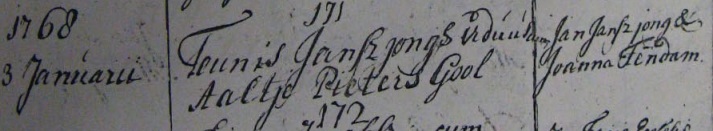 1768
3 Januarii
171
Teunis Jansz jongs
Aaltje Pieters Gool
Jan Jansz jong &
Joanna Tendam.
172